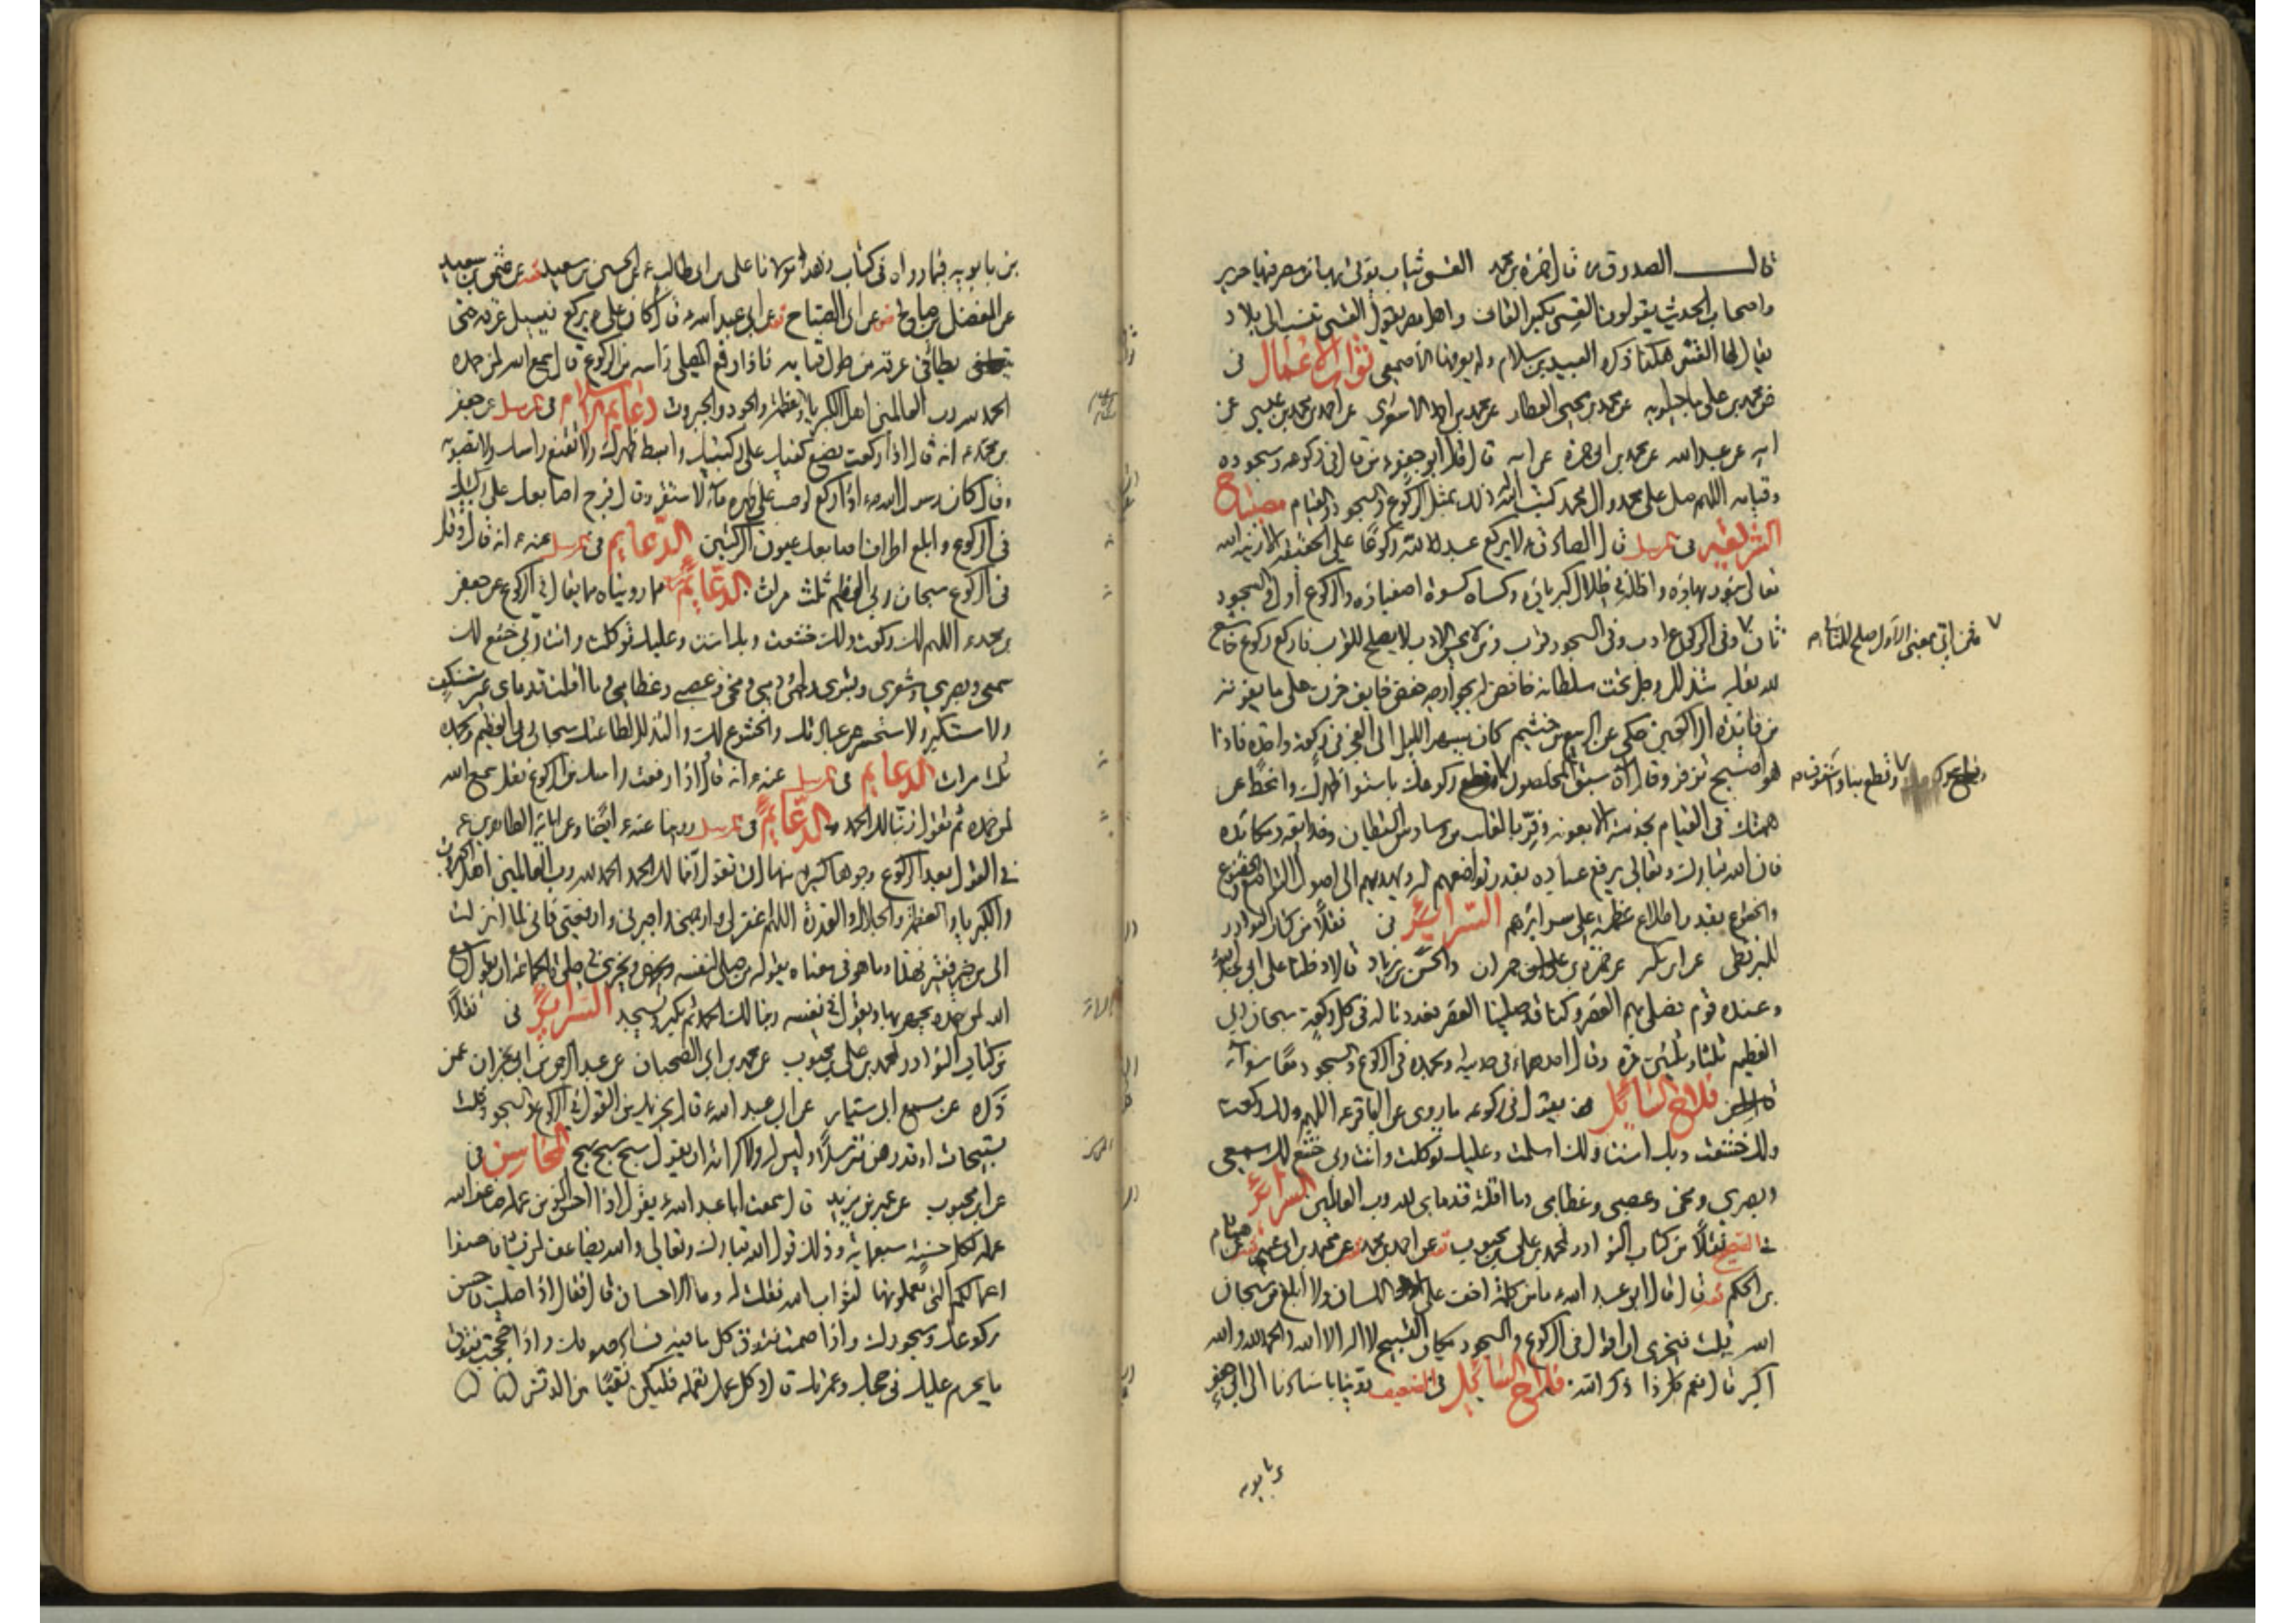 قال الصدوق ره قال حمزة بن محمد القسي ثياب يؤتى بها من مصر فيها حرير
واصحاب الحديث يقولون القسي بكسر القاف واهل مصر يقول القسي تنسب الى بلاد
يقال لها القس هكذا ذكره العبيد بن سلام ولم يعرفها الأصمعي ثواب الاعمال في
عن محمد بن علي ماجيلويه عن محمد بن يحيى العطار عن محمد بن احمد الاشعري عن احمد بن محمد بن عيسى عن
ابيه عن عبد الله عن محمد بن ابي حمزة عن ابيه قال قال ابو جعفر ع من قال في ركوعه وسجوده
وقيامه اللهم صل على محمد وآل محمد كتب الله له ذلك بمثل الركوع والسجود والقيام مصباح
الشريعة في مرسل قال الصادق ع لا يركع عبد لله ركوعا على الحقيقة الا زينه الله
تعالى بنور بهاؤه واظله في ظلال كبريائه وكساه كسوة اصفيائه والركوع أول والسجود
ثان وفي الركوع ادب وفي السجود قرب ومن لا يحسن الادب لا يصلح للقرب فاركع ركوع خاشع
لله بقلبه متذلل وجل تحت سلطانه خافض له بجوارحه خفض خايف حزن على ما يفوته
من فايدة الراكعين حكي عن الربيع بن خثيم كان يسهر الليل الى الفجر في ركعة واحدة فاذا
هو اصبح تزفر وقال آه سبق المخلصون ركوعك باستواء ظهرك وانحط عن
همتك في القيام بخدمته الا بعونه وفر بالقلب من وساوس الشيطان وخدايعه ومكائده
فان الله تبارك وتعالى يرفع عباده بقدر تواضعهم له ويهديهم الى اصول التواضع والخضوع
والخشوع بقدر اطلاع عظمته على سرائرهم السرائر في نقلا من كتاب النوادر
للبزنطي عن ابن بكير عن حمزة بن حمران والحسن بن زياد قالا دخلنا على ابي عبد الله
وعنده قوم فصلى بهم العصر وكنا قد صلينا العصر فعددنا له في كل ركعة سبحان ربي
العظيم ثلثا وثلثين مرة وقال احدهما في حديثه وبحمده في الركوع والسجود معا سواء
فلاح السائل يقول في ركوعه ما روي عن الباقر ع اللهم لك ركعت
ولك خشعت وبك امنت ولك اسلمت وعليك توكلت وانت ربي خشع لك سمعي
وبصري ومخي وعصبي وعظامي وما اقلته قدماي لله رب العالمين السرائر
في الصحيح نقلا من كتاب النوادر لمحمد بن علي بن محبوب عن احمد بن محمد عن محمد بن ابي عمير عن هشام
بن الحكم قال قال ابو عبد الله ع ما من كلمة اخف على اللسان ولا ابلغ من سبحان
الله قلت فيجزي ان اقول في الركوع والسجود مكان التسبيح لا اله الا الله والحمد لله والله
اكبر قال نعم كل ذا ذكر الله فلاح السائل في الضعيف روينا باسنادنا الى ابي جعفر
بن بابويه
فمن اتى بمعنى الاول صلح للثاني
وتقطع بنا
بن بابويه فيما رواه في كتاب زهد مولانا علي بن ابي طالب ع عن الحسين بن سعيد
عن المفضل بن صالح عن ابي الصباح عن ابي عبد الله ع قال كان علي ع يركع فيسيل عرقه حتى
يطأ في عرقه من طول قيامه فاذا رفع المصلي رأسه من الركوع قال سمع الله لمن حمده
الحمد لله رب العالمين اهل الكبرياء والعظمة والجود والجبروت دعايم الاسلام في مرسل عن جعفر
بن محمد ع انه قال اذا ركعت فضع كفيك على ركبتيك وابسط ظهرك ولا تقنع راسك ولا تصوبه
وقال كان رسول الله ص اذا ركع لو صب على ظهره ماء لاستقر وقال فرج اصابعك على ركبتيك
في الركوع وابلغ اطراف اصابعك عيون الركبتين الدعايم في مرسل عنه ع انه قال وقل
في الركوع سبحان ربي العظيم ثلث مرات الدعايم مما رويناه مما يقال في الركوع عن جعفر
بن محمد ع اللهم لك ركعت ولك خشعت وبك امنت وعليك توكلت وانت ربي خشع لك
سمعي وبصري وشعري وبشري ولحمي ودمي ومخي وعصبي وعظامي وما اقلت قدماي غير مستنكف
ولا مستكبر ولا مستحسر عن عبادتك والخشوع لك والتذلل لطاعتك سبحان ربي العظيم وبحمده
ثلث مرات الدعايم في مرسل عنه ع انه قال اذا رفعت راسك من الركوع فقل سمع الله
لمن حمده ثم تقول ربنا لك الحمد الدعايم في مرسل روينا عنه ع ايضا وعن آبائه الطاهرين ع
في القول بعد الركوع وجوها كثيرة منها ان تقول ربنا لك الحمد الحمد لله رب العالمين اهل الجبروت
والكبرياء والعظمة والجلال والقدرة اللهم اغفر لي وارحمني واجبرني وارفعني فاني لما انزلت
الي من خير فقير فهذا وما هو في معناه يقوله من صلى لنفسه ويجزي في صلوة الجماعة ان يقول سمع
الله لمن حمده يجهر بها ويقول في نفسه ربنا لك الحمد ثم يكبر ويسجد السرائر في نقلا
من كتاب النوادر لمحمد بن علي بن محبوب عن محمد بن ابي الصهبان عن عبد الرحمن بن ابي نجران عمن
ذكره عن مسمع ابي سيار عن ابي عبد الله ع قال يجزيك من القول في الركوع والسجود ثلث
تسبيحات او قدرهن مترسلا وليس له ولا كرامة ان يقول سبح سبح سبح المحاسن في
عن ابن محبوب عن عمر بن يزيد قال سمعت ابا عبد الله ع يقول اذا احسن المؤمن عمله ضاعف الله
عمله لكل حسنة سبعمائة وذلك قول الله تبارك وتعالى والله يضاعف لمن يشاء فاحسنوا
اعمالكم التي تعملونها لثواب الله فقلت له وما الاحسان قال فقال اذا صليت فاحسن
ركوعك وسجودك واذا صمت فتوق كل ما فيه فساد صومك واذا حججت فتوق
ما يحرم عليك في حجك وعمرتك قال وكل عمل تعمله فليكن نقيا من الدنس